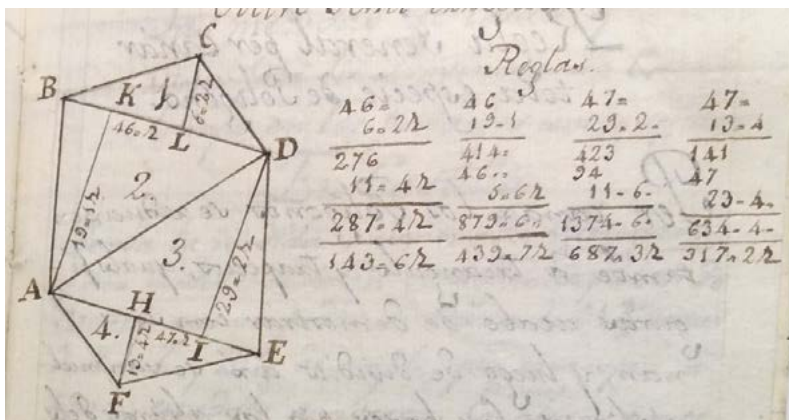 Reglas.
C
B
K
1
6=2r
46=r
L
D
2.
19=1r
3.
29=2r
A
H
4.
47=r
I
E
13=4r
F
46=
6=2r
276
11=4r
287=4r
143=6r
46
19=1
414=
46==
5=6r
879=6=
439=7r
47=
29=2=
423
94
11=6=
1374=6=
687=3r
47=
13=4
141
47
23=4=
634=4=
317=2r